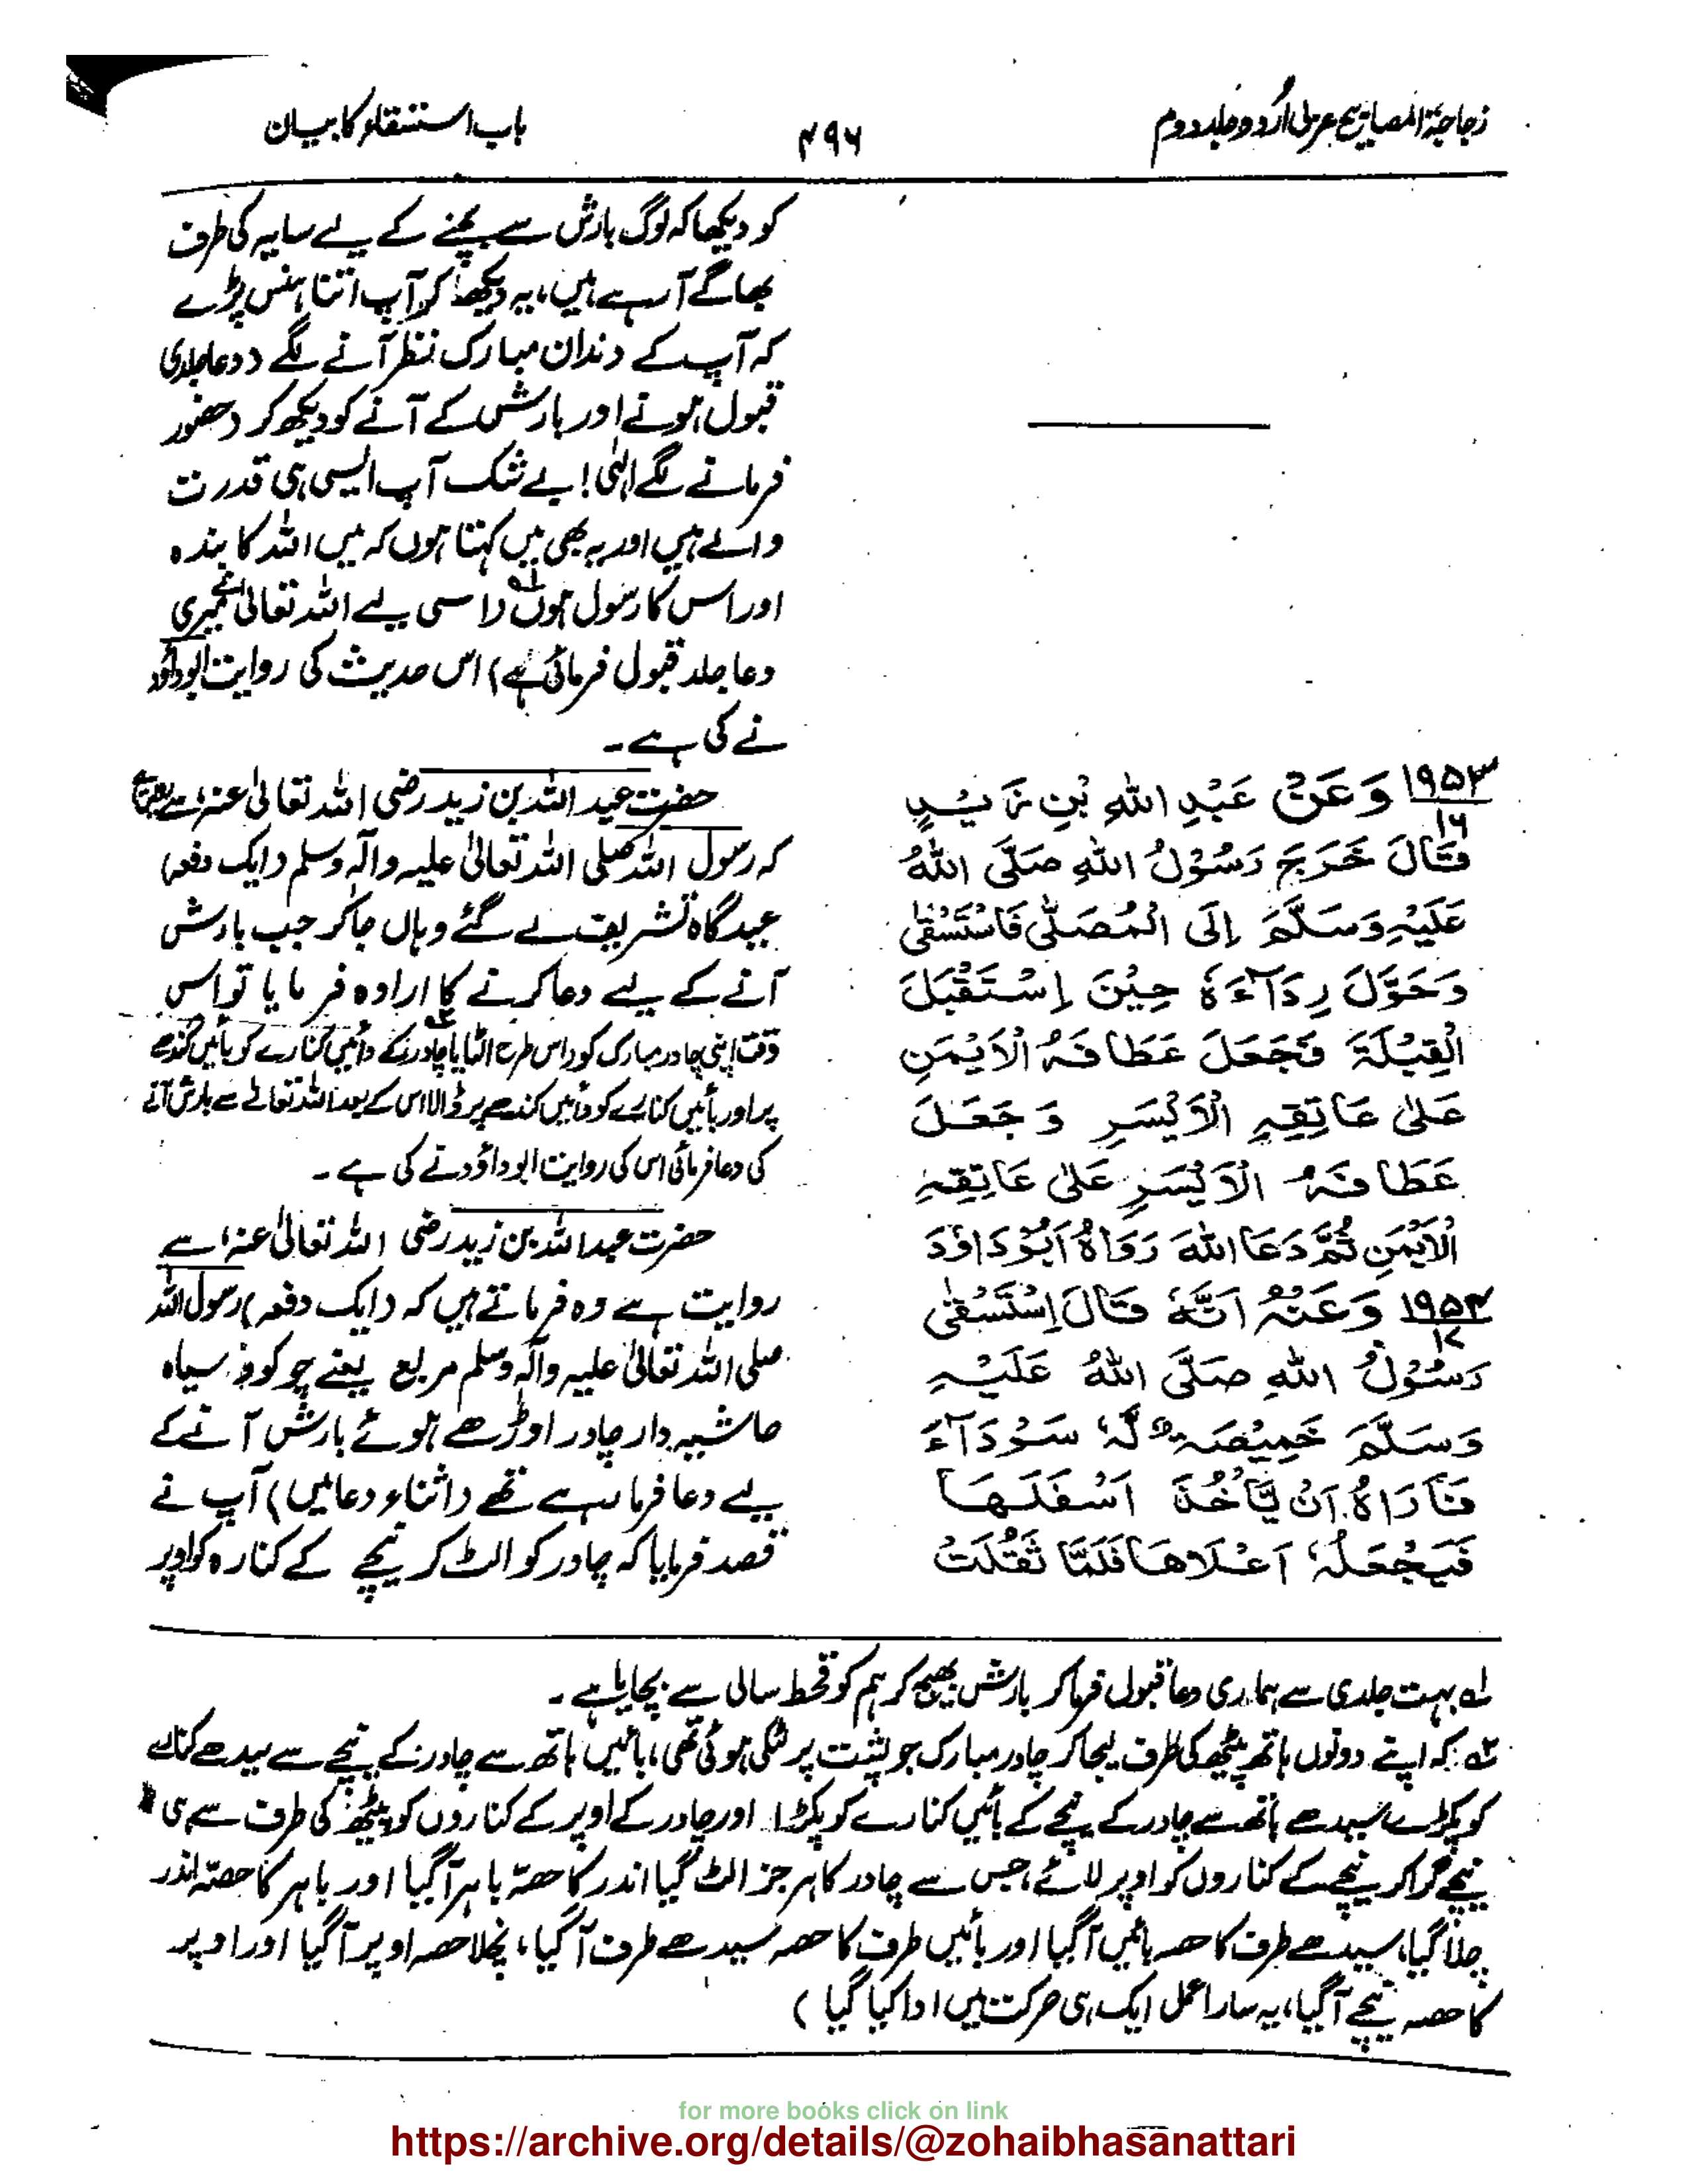 زجاجۃ المصابیح عربی اُردو جلد دوم
۴۹۶
باب استسقاء کا بیان
کو دیکھا کہ لوگ بارش سے بچنے کے لیے سایہ کی طرف
بھاگے آرہے ہیں، یہ دیکھ کر آپ اتنا ہنس پڑے
کہ آپ کے دندان مبارک نظر آنے لگے (دعا جلدی
قبول ہونے اور بارش کے آنے کو دیکھ کر) حضور
فرمانے لگے الٰہی! بے شک آپ ایسی ہی قدرت
والے ہیں اور یہ بھی میں کہتا ہوں کہ میں اللہ کا بندہ
اور اس کا رسول ہوں لہ (اسی لیے اللہ تعالیٰ نے میری
دعا جلد قبول فرمائی ہے) اس حدیث کی روایت ابوداؤد
نے کی ہے۔
۱۹۵۳ وَعَنْ عَبْدِ اللهِ بْنِ زَيْدٍ
۱۶
قَالَ خَرَجَ رَسُوْلُ اللهِ صَلَّى اللهُ
عَلَيْهِ وَسَلَّمَ اِلَى الْمُصَلّٰى فَاسْتَسْقٰى
وَحَوَّلَ رِدَآءَهٗ حِيْنَ اِسْتَقْبَلَ
الْقِبْلَةَ فَجَعَلَ عَطَافَهُ الْاَيْمَنِ
عَلٰى عَاتِقِهِ الْاَيْسَرِ وَجَعَلَ
عَطَافَهُ الْاَيْسَرِ عَلٰى عَاتِقِهِ
الْاَيْمَنِ ثُمَّ دَعَا اللهَ رَوَاهُ اَبُوْدَاوٗدَ
حضرت عبد اللہ بن زید رضی اللہ تعالیٰ عنہ، سے روایت ہے
کہ رسول اللہ صلی اللہ تعالیٰ علیہ وآلہ وسلم (ایک دفعہ)
عیدگاہ تشریف لے گئے وہاں جا کر جب بارش
آنے کے لیے دعا کرنے کا ارادہ فرمایا تو اس
وقت اپنی چادر مبارک کو (اس طرح الٹایا ۲ہ چادر کے دائیں کنارے کو بائیں کندھے
پر اور بائیں کنارے کو دائیں کندھے پر ڈالا اس کے بعد اللہ تعالےٰ سے بارش آنے
کی دعا فرمائی اس کی روایت ابوداؤد نے کی ہے۔
۱۹۵۴ وَعَنْهُ اَنَّهٗ قَالَ اِسْتَسْقٰى
۱۷
رَسُوْلُ اللهِ صَلَّى اللهُ عَلَيْهِ
وَسَلَّمَ خَمِيْصَةٌ لَّهٗ سَوْدَآءَ
فَاَرَادَ اَنْ يَّاْخُذَ اَسْفَلَهَا
فَيَجْعَلُهٗ اَعْلَاهَا فَلَمَّا ثَقُلَتْ
حضرت عبد اللہ بن زید رضی اللہ تعالیٰ عنہ، سے
روایت ہے وہ فرماتے ہیں کہ (ایک دفعہ) رسول اللہ
صلی اللہ تعالیٰ علیہ وآلہ وسلم مربع یعنے چوکور سیاہ
حاشیہ دار چادر اوڑھے ہوئے بارش آنے کے
لیے دعا فرما رہے تھے (اثناء دعا میں) آپ نے
قصد فرمایا کہ چادر کو الٹ کر نیچے کے کنارہ کو اوپر
لہ بہت جلدی سے ہماری دعا قبول فرما کر بارش بھیج کر ہم کو قحط سالی سے بچایا ہے۔
۲ہ: کہ اپنے دونوں ہاتھ پیٹھ کی طرف لیجا کر چادر مبارک جو پشت پر لٹکی ہوئی تھی، بائیں ہاتھ سے چادر کے نیچے سے سیدھے کنارے
کو پکڑے سیدھے ہاتھ سے چادر کے نیچے کے بائیں کنارے کو پکڑا اور چادر کے اوپر کے کناروں کو پیٹھ کی طرف سے ہی
نیچے گرا کر نیچے کے کناروں کو اوپر لائے، جس سے چادر کا ہر جز الٹ گیا اندر کا حصہ باہر آگیا اور باہر کا حصہ اندر
چلا گیا، سیدھے طرف کا حصہ بائیں آگیا اور بائیں طرف کا حصہ سیدھے طرف آگیا، نچلا حصہ اوپر آگیا اور اوپر
کا حصہ نیچے آگیا، یہ سارا عمل ایک ہی حرکت میں ادا کیا گیا)
for more books click on link
https://archive.org/details/@zohaibhasanattari